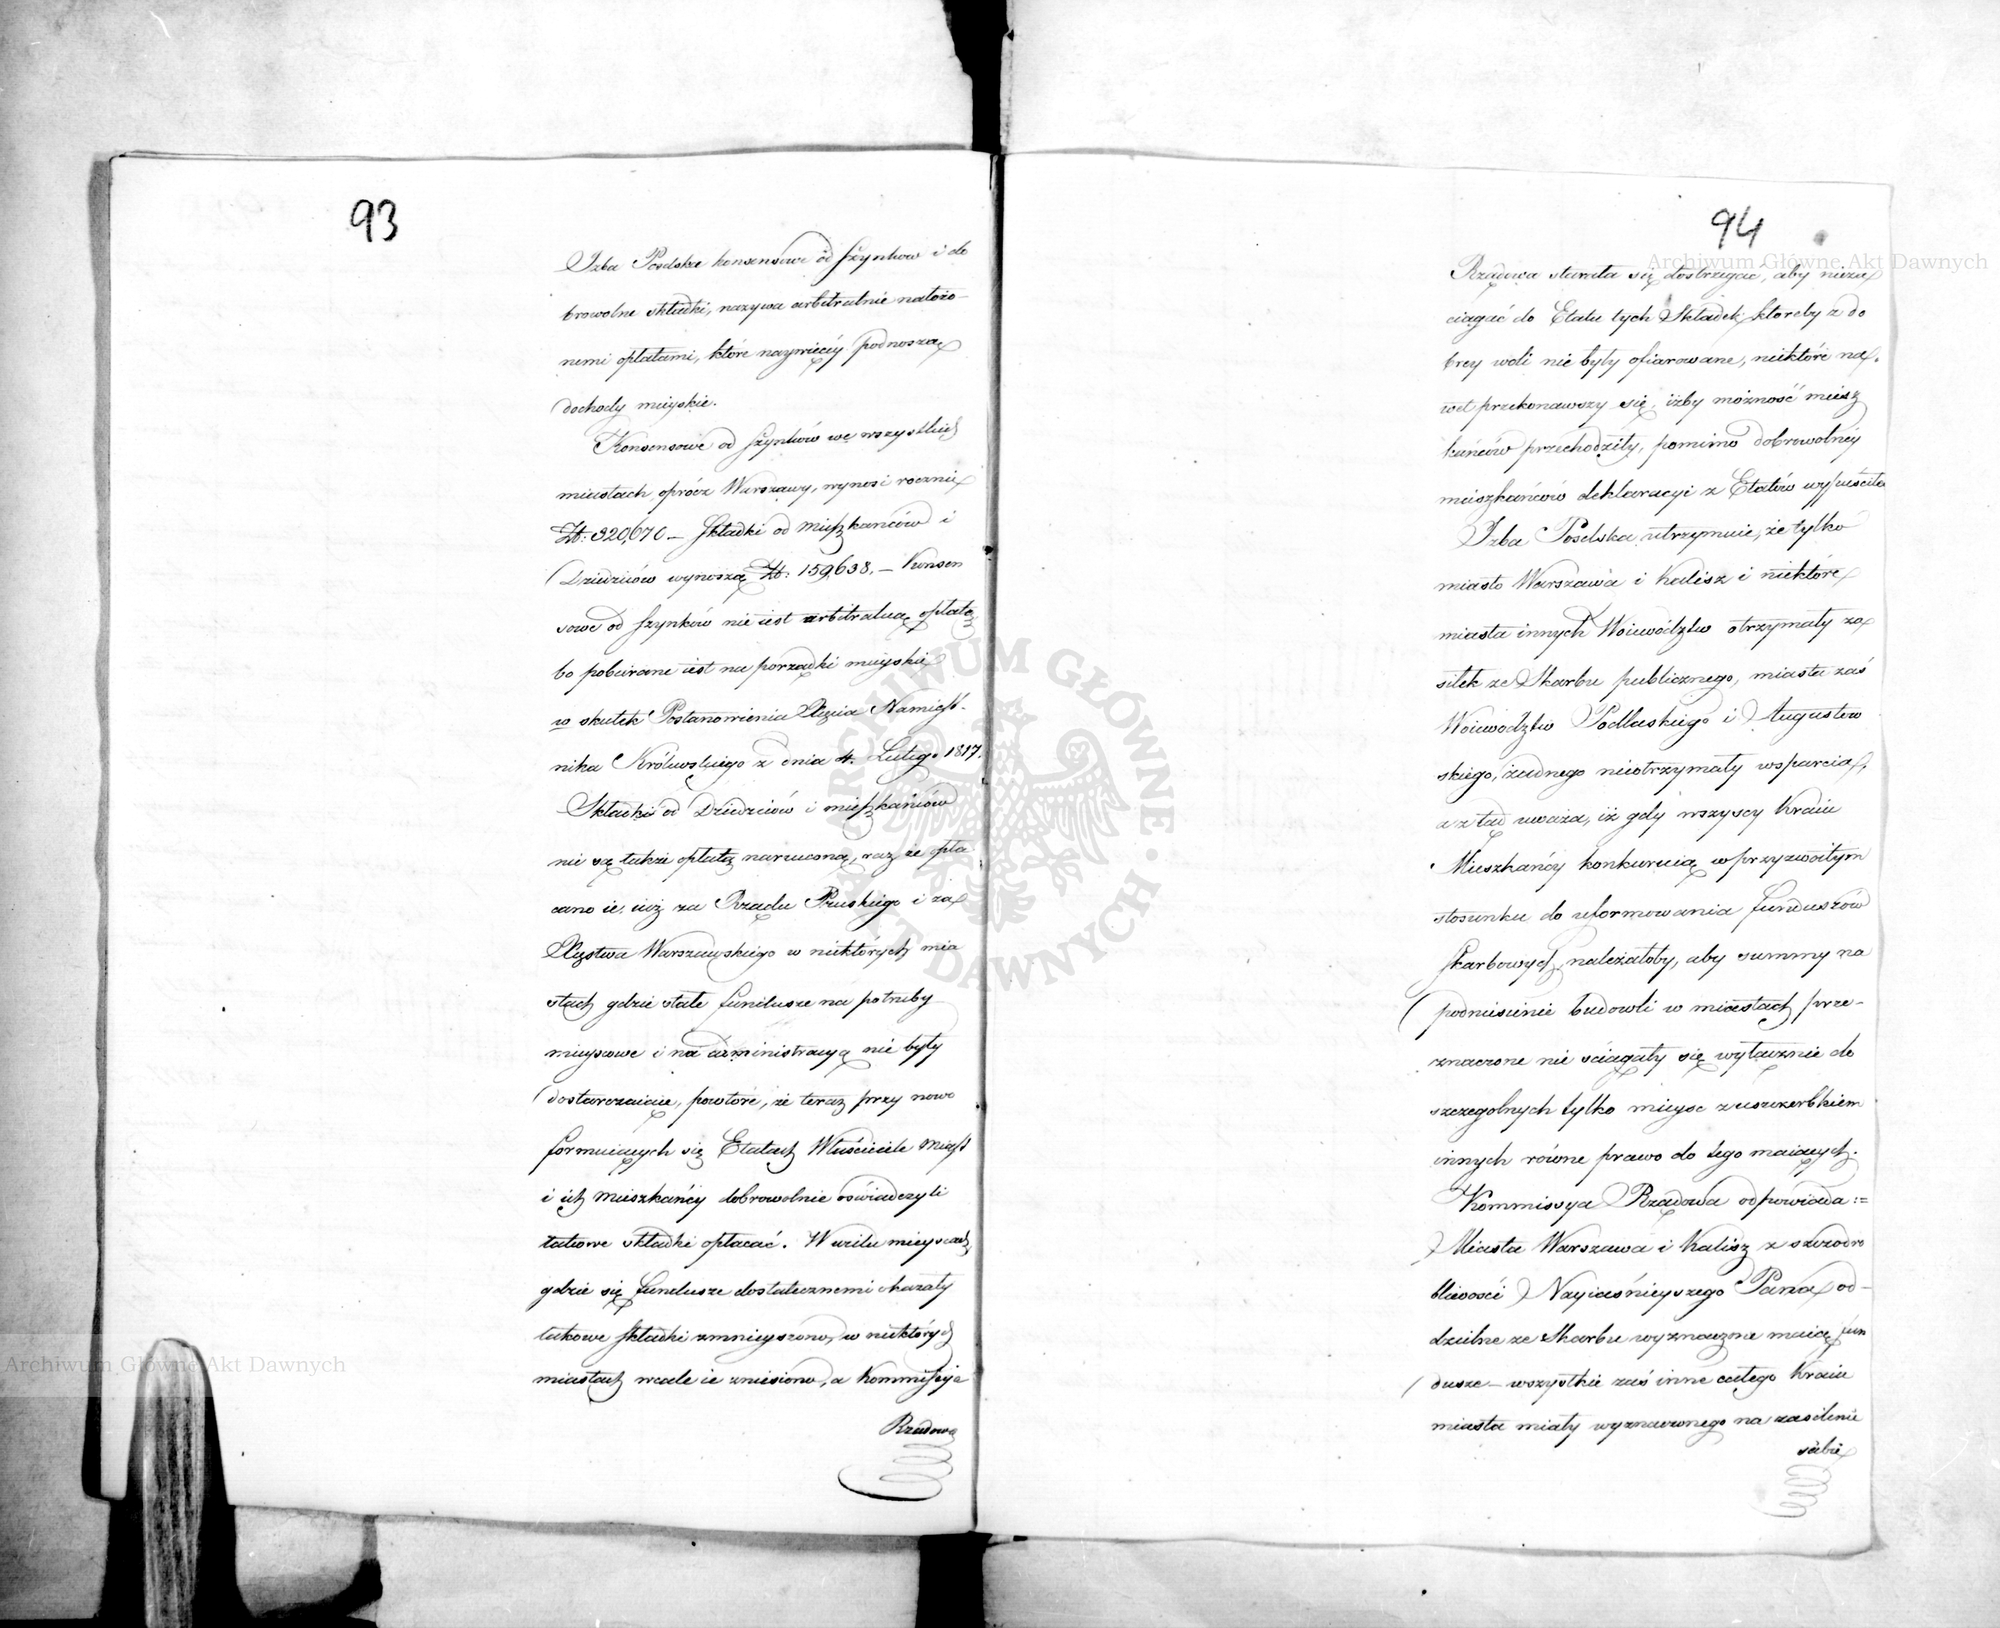 93
Izba Poselska konsensowe od szynków i do
browolne składki, nazywa arbitralnie nałożo-
nemi opłatami, które naywięcéy podnoszą
dochody mieyskie.
Konsensowe od szynków we wszystkich
miastach, oprócz Warszawy, wynosi rocznie
Zł: 320,670 – składki od mieszkańców i
Dziedziców wynoszą Zł: 159,638. – Konsen
sowe od szynków nie iest arbitralną opłatą
bo pobierane iest na porządki mieyskie
w skutek Postanowienia Xięcia Namiest-
nika Królewskiego z dnia 4. Lutego 1817.
Składki od Dziedziców i mieszkańców
nie są także opłatą narzuconą, raz że opła
cano ie, iuż za Rządu Pruskiego i za
Xięstwa Warszawskiego w niektórych mia
stach gdzie stałe fundusze na potrzeby
mieyscowe i na administracyą nie były
dostarczaiące, powtóre, że teraz przy nowo
formuiących się Etatach Właściciele miast
i ich mieszkańcy dobrowolnie oświadczyli
takowe składki opłacać. W wielu mieyscach
gdzie się fundusze dostatecznemi okazały
takowe składki zmnieyszono, w niektórych
miastach wcale ie zniesiono, a Kommissyia
Rządowa
94
Rządowa starała się dostrzegać, aby nieza
ciągać do Etatu tych Składek któreby z do
brey woli nie były ofiarowane, niektóre na-
wet przekonawszy się, iżby możność miesz
kańców przechodziły, pomimo dobrowolnéy
mieszkańców deklaracyi z Etatów wypuściła
Izba Poselska utrzymuie, że tylko
miasto Warszawa i Kalisz i niektóre
miasta innych Woiewództw otrzymały za
siłek ze Skarbu publicznego, miasta zaś
Woiewództw Podlaskiego i Augustow
skiego, żadnego nieotrzymały wsparcia,
a z tąd uważa, iż gdy wszyscy Kraiu
Mieszkańcy konkuruią w przyzwoitym
stosunku do uformowania funduszów
skarbowych, należałoby, aby summy na
podniesienie budowli w miastach prze-
znaczone nie ściągały się wyłącznie do
szczegolnych tylko mieysc z uszczerbkiem
innych równe prawo do tego maiących.
Kommissya Rządowa odpowiada:=
Miasta Warszawa i Kalisz z szczodro
bliwości Nayiaśnieyszego Pana od-
dzielne ze Skarbu wyznaczone maią fun
dusze – wszystkie zaś inne całego Kraiu
miasta miały wyznaczonego na zasilenie
siebie
Archiwum Główne Akt Dawnych
Archiwum Główne Akt Dawnych
ARCHIWUM GŁÓWNE · AKT DAWNYCH ·